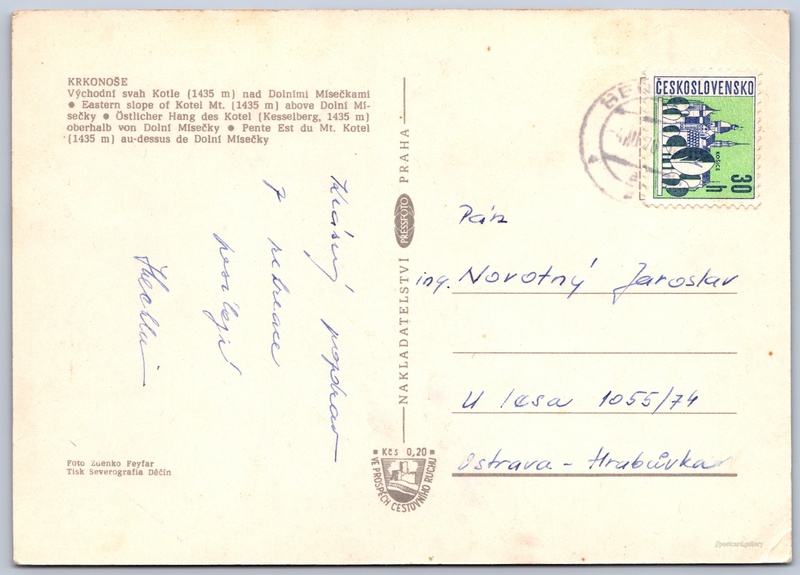 KRKONOŠE
Východní svah Kotle (1435 m) nad Dolními Mísečkami
● Eastern slope of Kotel Mt. (1435 m) above Dolní Mí-
sečky ● Östlicher Hang des Kotel (Kesselberg, 1435 m)
oberhalb von Dolní Mísečky ● Pente Est du Mt. Kotel
(1435 m) au-dessus de Dolní Mísečky
Krásný pozdrav
z rekreace
posílají
Foto Zdenko Feyfar
Tisk Severografia Děčín
NAKLADATELSTVÍ PRESSFOTO PRAHA
Kčs 0,20
VE PROSPĚCH CESTOVNÍHO RUCHU
ČESKOSLOVENSKO
KOŠICE
30 h
Pán
ing. Novotný Jaroslav
U lesa 1055/74
Ostrava - Hrabůvka